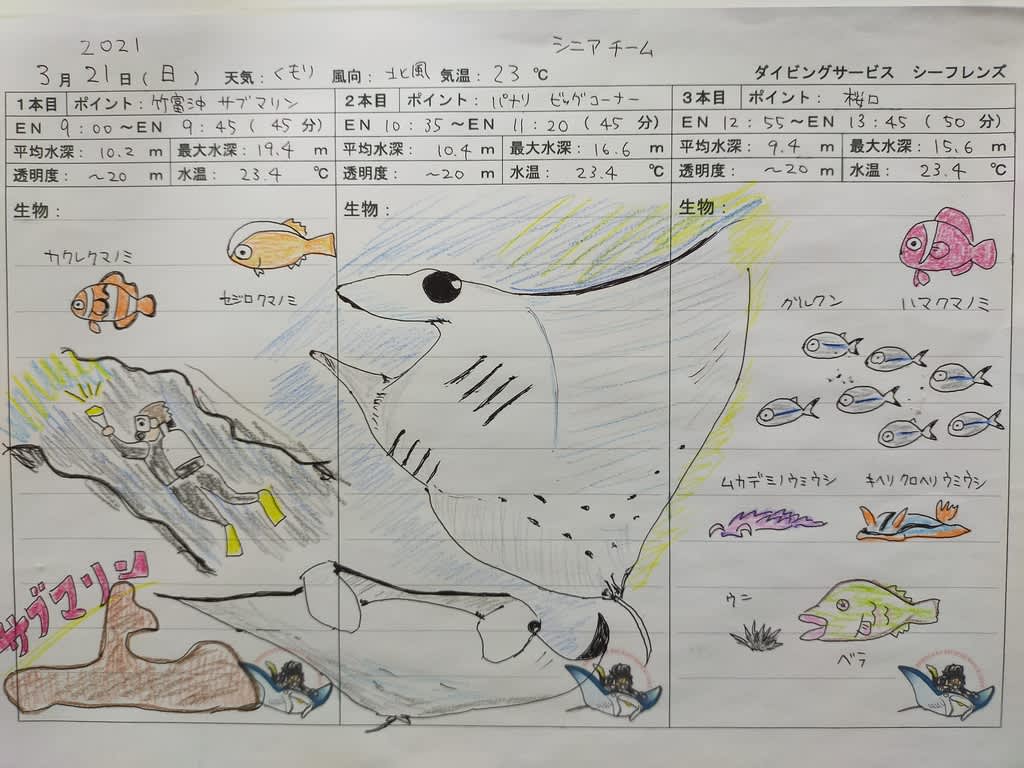 2021
シニアチーム
3月21日(日) 天気:くもり 風向:北風 気温:23℃
ダイビングサービス シーフレンズ
1本目 ポイント:竹富沖 サブマリン
EN 9:00~EN 9:45(45分)
平均水深:10.2m 最大水深:19.4m
透明度:~20m 水温:23.4℃
生物:
カクレクマノミ
セジロクマノミ
サブマリン
2本目 ポイント:パナリ ビッグコーナー
EN 10:35~EN 11:20(45分)
平均水深:10.4m 最大水深:16.6m
透明度:~20m 水温:23.4℃
生物:
3本目 ポイント:桜口
EN 12:55~EN 13:45(50分)
平均水深:9.4m 最大水深:15.6m
透明度:~20m 水温:23.4℃
生物:
グルクン
ハマクマノミ
ムカデミノウミウシ
キヘリクロヘリウミウシ
ウニ
ベラ